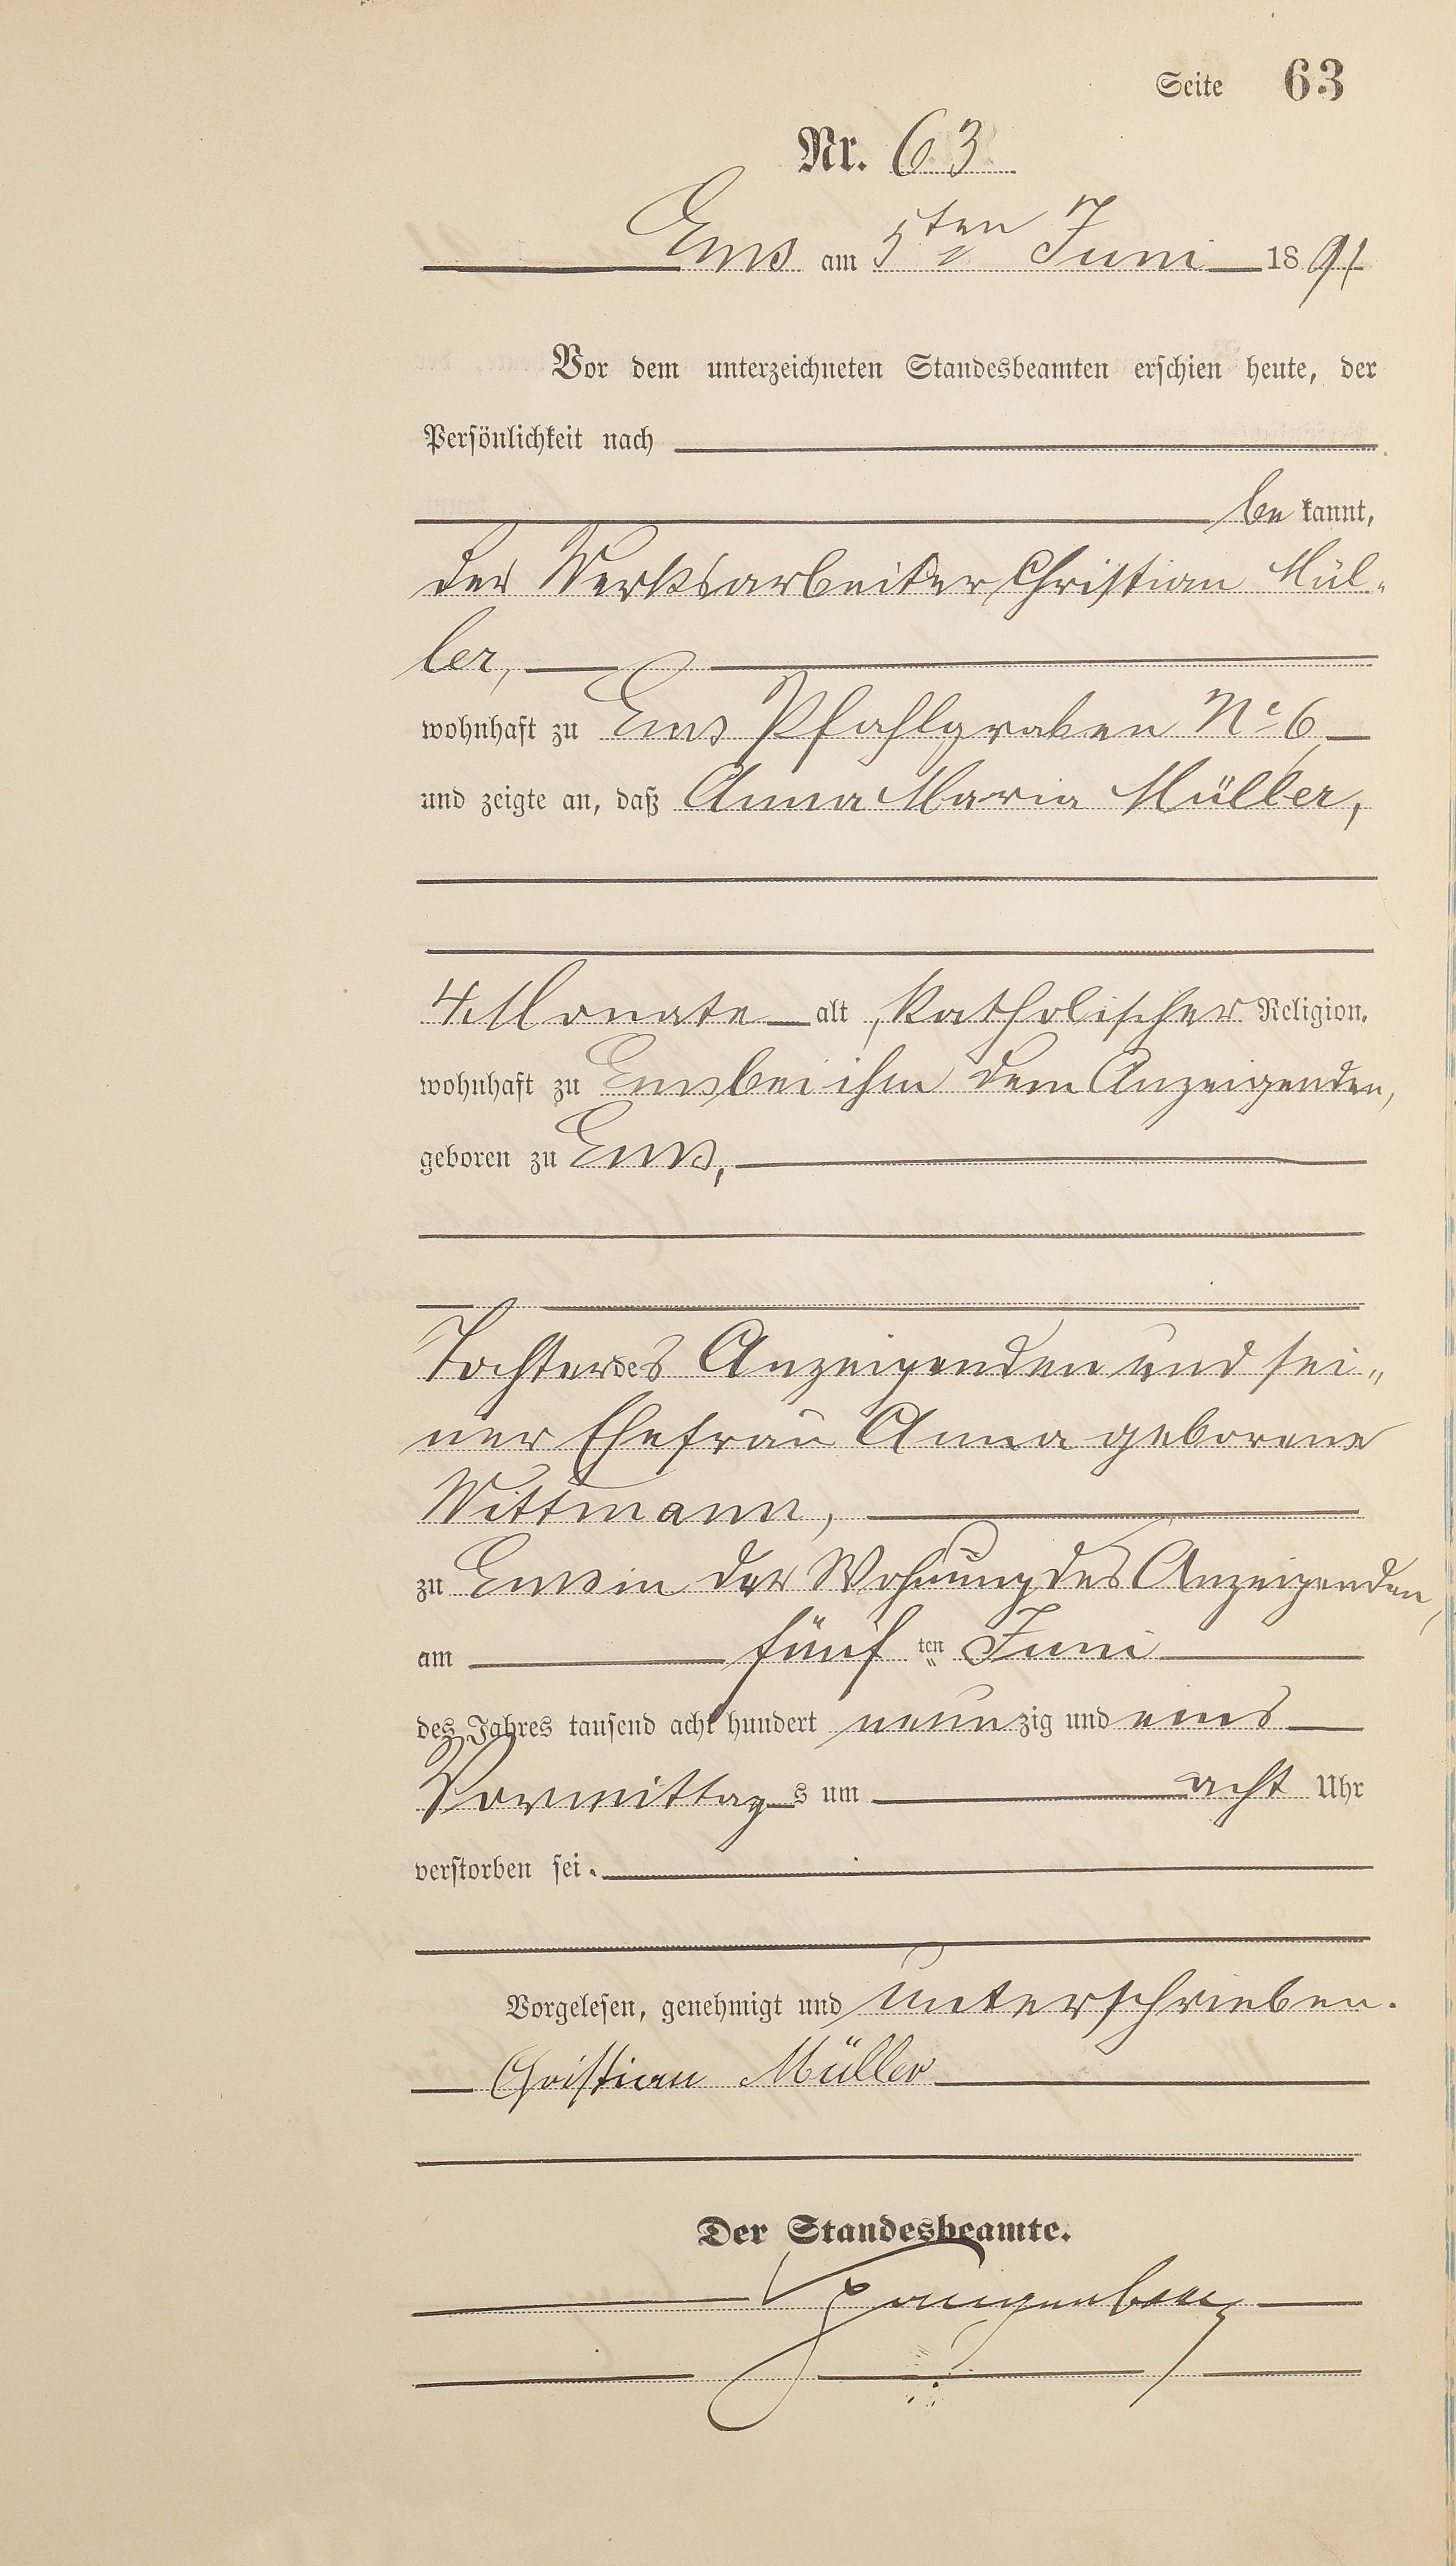 Seite 63
Nr. 63
Ems am 5ten Juni 1891
Vor dem unterzeichneten Standesbeamten erschien heute, der
Persönlichkeit nach
be kannt,
der Werksarbeiter Christian Mül-
ler,
wohnhaft zu Ems Pfahlgraben No 6
und zeigte an, daß Anna Maria Müller,
4 Monate alt, katholischer Religion,
wohnhaft zu Ems bei ihm dem Anzeigenden,
geboren zu Ems,
Tochter des Anzeigenden und sei-
ner Ehefrau Anna geborene
Wittmann,
zu Ems in der Wohnung des Anzeigenden,
am fünf ten Juni
des Jahres tausend acht hundert neun zig und eins
Vormittag s um acht Uhr
verstorben sei.
Vorgelesen, genehmigt und unterschrieben.
Christian Müller
Der Standesbeamte.